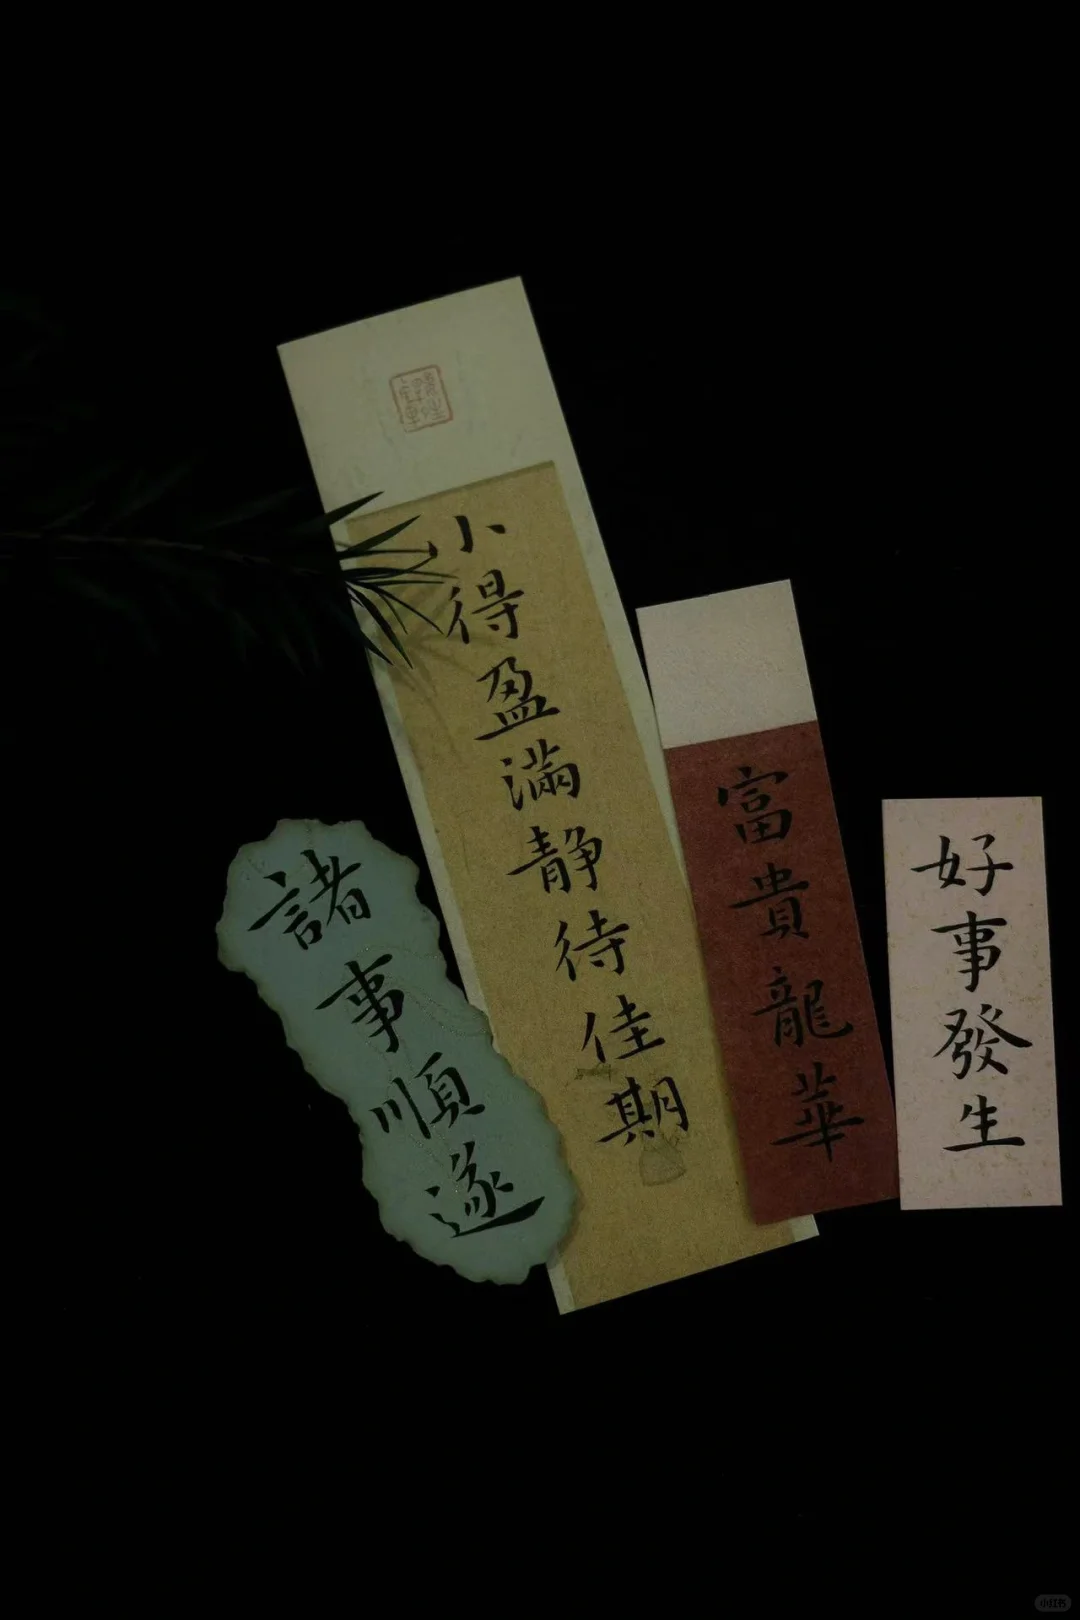 諸事順遂
小得盈滿靜待佳期
富貴龍華
好事發生
小红书